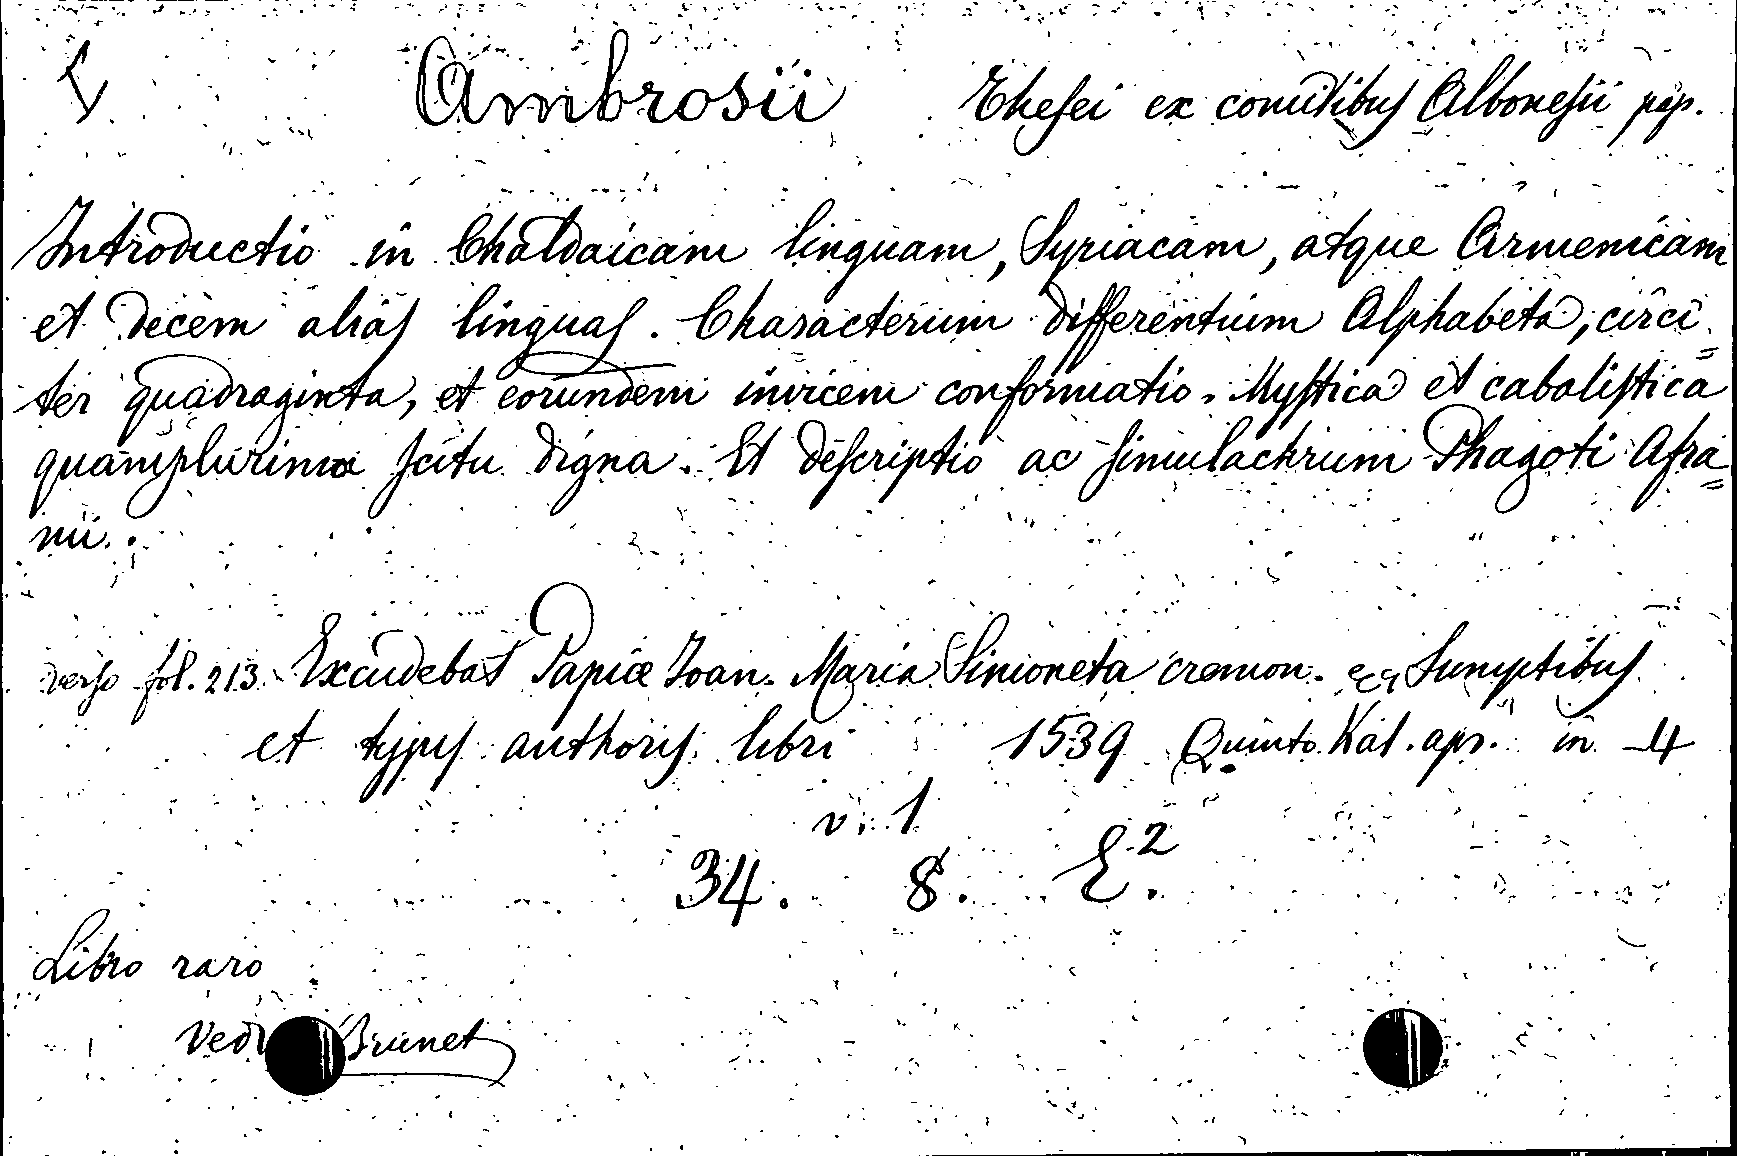 Ambrosii Thesei ex comitibus Albonesii pap.
Introductio in Chaldaicam linguam, Syriacam, atque Armenicam
et decem alias linguas. Characterum differentium Alphabeta, circi=
ter quadraginta, et eorundem invicem conformatio. Mystica et cabalistica
quamplurima scitu digna. Et descriptio ac simulachrum Phagoti Afra=
nii.
verso fol. 213. Excudebat Papiæ Ioan. Maria Simoneta cremon. Sumptibus
et typis authoris libri 1539 Quinto Kal. apr. in 4
v. 1
34. 8. E.2
Libro raro
Brunet